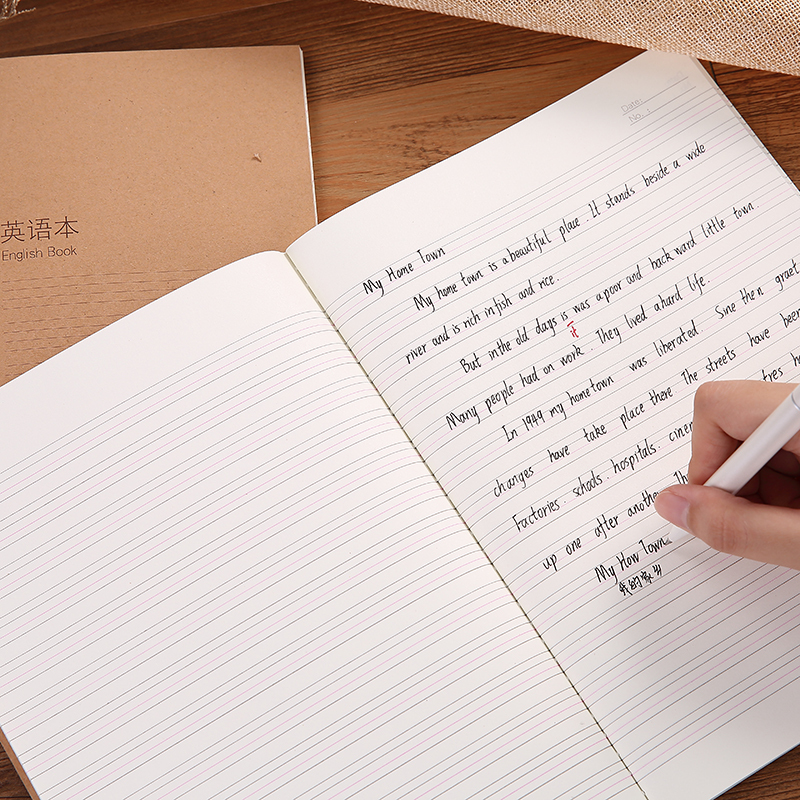 英语本
English Book
Date:
No.:
My Home Town
My home town is a beautiful place. It stands beside a wide
river and is rich in fish and rice.
But in the old days is was a poor and back ward little town.
it
Many people had on work. They lived a hard life.
In 1949 my home town was liberated. Sine then graet
changes have take place there The streets have been
Factories. schools. hospitals. cinem
up one after another. Th
My How Town
我的家乡